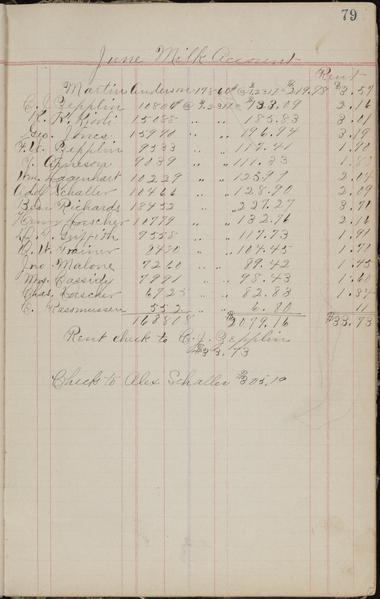 79
June Milk Account
Rent
Martin Anderson 17860# @ $1.2317 $219.98 $3.57
C. J. Zepplin 10800# @ $1.2317 $133.09 2.16
15088 " " 185.83 3.01
Geo. Jones 15990 " " 196.94 3.19
Zepplin 9533 " " 117.41 1.90
9039 " " 111.33
Wm. Hagenhart 10229 " " 125.99 2.04
Schaller 10466 " " 128.90 2.09
Ben Richards " " 3.71
Henry Loescher 10779 " " 132.76 2.16
Griffith 9558 " " 117.73 1.91
Trainer " " 104.45 1.70
Joe Malone 7260 " " 89.42 1.45
Mrs. Cassidy 7991 " " 98.43 1.60
Chas. Loescher 6725 " " 82.83 1.34
C. Rasmussen 552 " " 6.80 11
168808 $2079.16 $33.73
Rent check to C. J. Zepplin
$33.73
Check to Alex Schaller $305.10